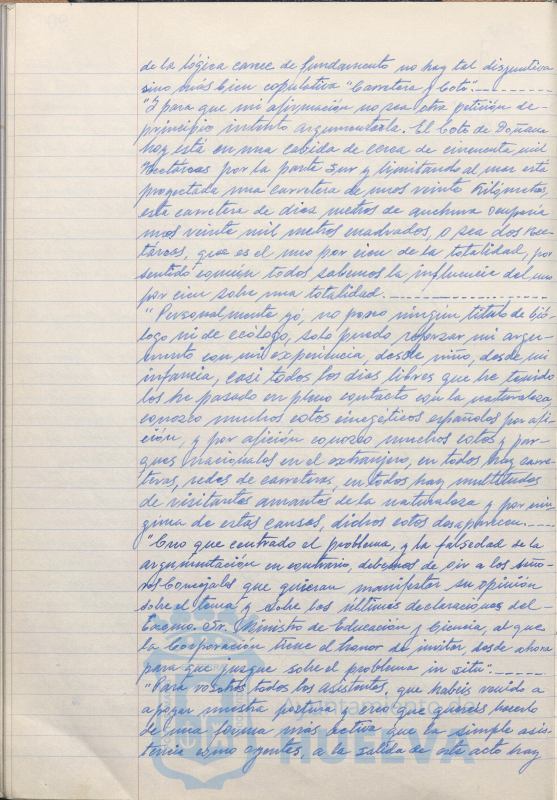 de la lógica carece de fundamento no hay tal disyuntiva
sino más bien copulativa "Carretera y Coto".
"Y para que mi afirmación no sea otra petición de
principio intento argumentarla. El Coto de Doñana
hoy está en una cabida de cerca de cincuenta mil
Hectáreas por la parte Sur y limitando al mar está
proyectada una carretera de unos veinte Kilómetros,
esta carretera de diez metros de anchura ocuparía
unos veinte mil metros cuadrados, o sea dos Hec-
táreas, que es el uno por cien de la totalidad, por
sentido común todos sabemos la influencia del uno
por cien sobre una totalidad.
"Personalmente yo, no poseo ningún título de bió-
logo ni de ecólogo, solo puedo reforzar mi argu-
mento con mi experiencia, desde niño, desde mi
infancia, casi todos los días libres que he tenido
los he pasado en pleno contacto con la naturaleza,
conozco muchos cotos cinegéticos españoles por afi-
ción, y por afición conozco muchos cotos y par-
ques nacionales en el extranjero, en todos hay carre-
teras, redes de carreteras, en todos hay multitudes
de visitantes amantes de la naturaleza y por nin-
guna de estas causas, dichos cotos desaparecen.
"Creo que centrado el problema, y la falsedad de la
argumentación en contrario, debemos de oír a los seño-
res Concejales que quieran manifestar su opinión
sobre el tema y sobre las últimas declaraciones del
Excmo. Sr. Ministro de Educación y Ciencia, al que
la Corporación tiene el honor de invitar desde ahora
para que juzgue sobre el problema in situ".
"Para vosotros todos los asistentes, que habéis venido a
apoyar nuestra postura y creo que queréis hacerlo
de una forma más activa que la simple asis-
tencia como oyentes, a la salida de este acto hay
Ayuntamiento
HUELVA